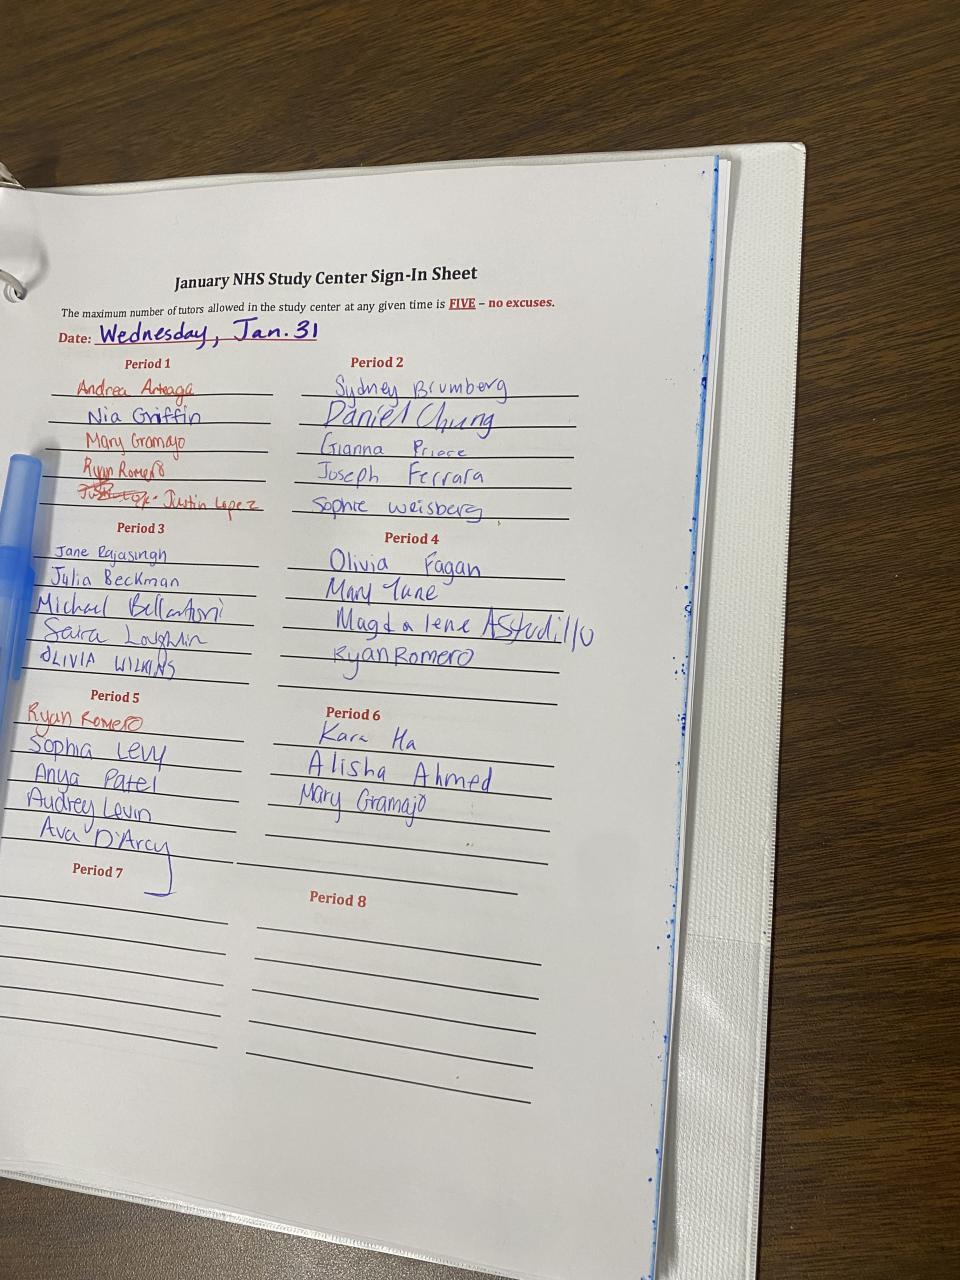 January NHS Study Center Sign-In Sheet
The maximum number of tutors allowed in the study center at any given time is FIVE – no excuses.
Date: Wednesday, Jan. 31
Period 1
Andrea Arteaga
Nia Griffin
Mary Gramajo
Ryan Romero
Justin Lopez
Period 2
Sydney Brumberg
Daniel Chung
Gianna
Joseph Ferrara
Sophie Weisberg
Period 3
Jane Rajasingh
Julia Beckman
Michael Bellantoni
Loughlin
OLIVIA WILKINS
Period 4
Olivia Fagan
Mary Jane
Magdalene Astudillo
Ryan Romero
Period 5
Ryan Romero
Sophia Levy
Anya Patel
Audrey Levin
Ava D'Arcy
Period 6
Kara Ha
Alisha Ahmed
Mary Gramajo
Period 7
Period 8